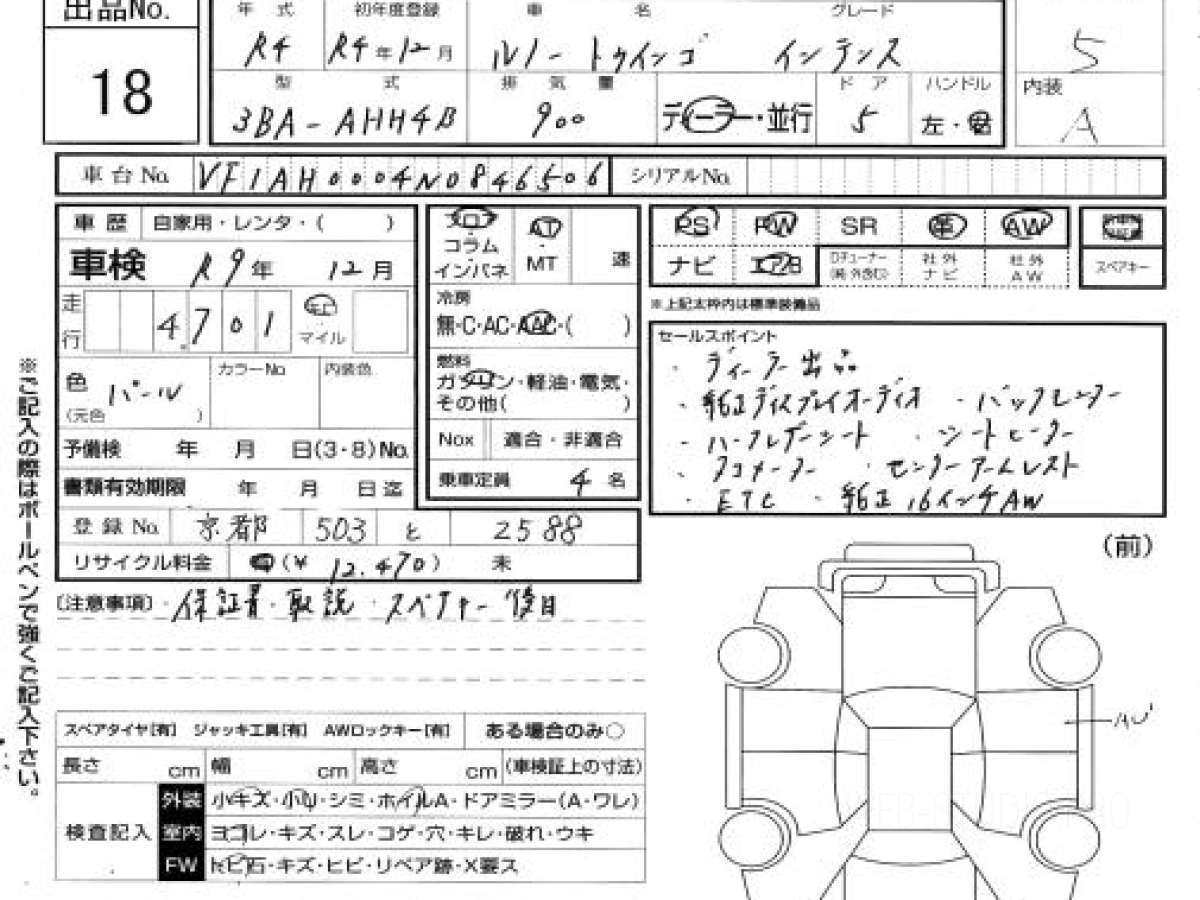 出品No. 年 式 初年度登録 車 名 グレード
18 R4 R4年12月 ルノー トゥインゴ インテンス 5
型 式 排 気 量 ド ア ハンドル 内装
3BA-AHH4B 900 ディーラー・並行 5 左・右 A
車台No. VF1AH0004N0846506 シリアルNo.
車 歴 自家用・レンタ・( )
車検 R9年 12月
走行 4.701 km マイル
色 パール (元色 ) カラーNo 内装色
予備検 年 月 日(3・8)No.
書類有効期限 年 月 日迄
登録No. 京都 503 と 2588
リサイクル料金 (¥ 12.470) 未
フロア コラム インパネ AT・MT 速
冷房
無・C・AC・AAC・( )
燃料
ガソリン・軽油・電気・
その他( )
Nox 適合・非適合
乗車定員 4 名
PS PW SR 革 AW
ナビ エアB Dチューナー 社外ナビ 社外AW スペアキー
※上記太枠内は標準装備品
セールスポイント
・ディーラー出品
・純正ディスプレイオーディオ ・バックセンサー
・ハーフレザーシート ・シートヒーター
・タコメーター ・センターアームレスト
・ETC ・純正16インチAW
[注意事項]・保証書・取説・スペアキー後日
(前)
AU
※ご記入の際はボールペンで強くご記入下さい。
スペアタイヤ[有] ジャッキ工具[有] AWロックキー[有] ある場合のみ○
長さ cm 幅 cm 高さ cm (車検証上の寸法)
検査記入
外装 小キズ・小U・シミ・ホイルA・ドアミラー(A・ワレ)
室内 ヨゴレ・キズ・スレ・コゲ・穴・キレ・破れ・ウキ
FW トビ石・キズ・ヒビ・リペア跡・X要ス